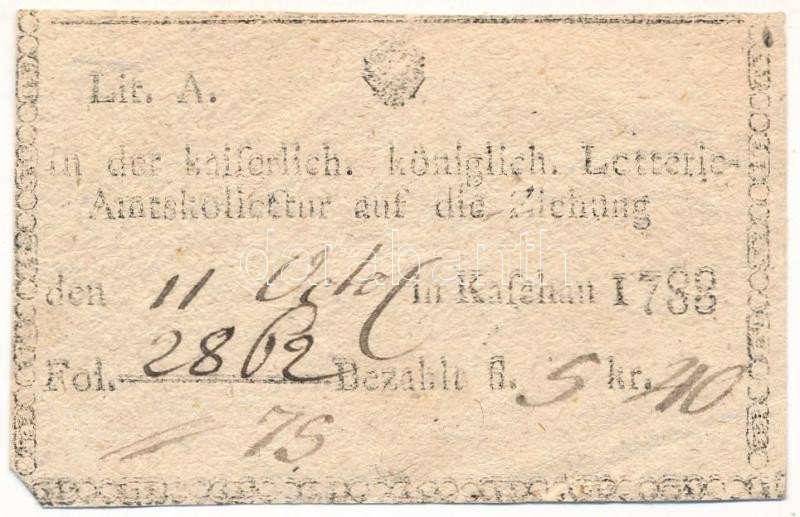 Lit. A.
in der kaiſerlich. königlich. Lotterie-
Amtskollektur auf die Ziehung
darabanth
den 11 Octob in Kaſchau 1788
Fol. 2862 Bezahlt fl. 5 kr. 40
75